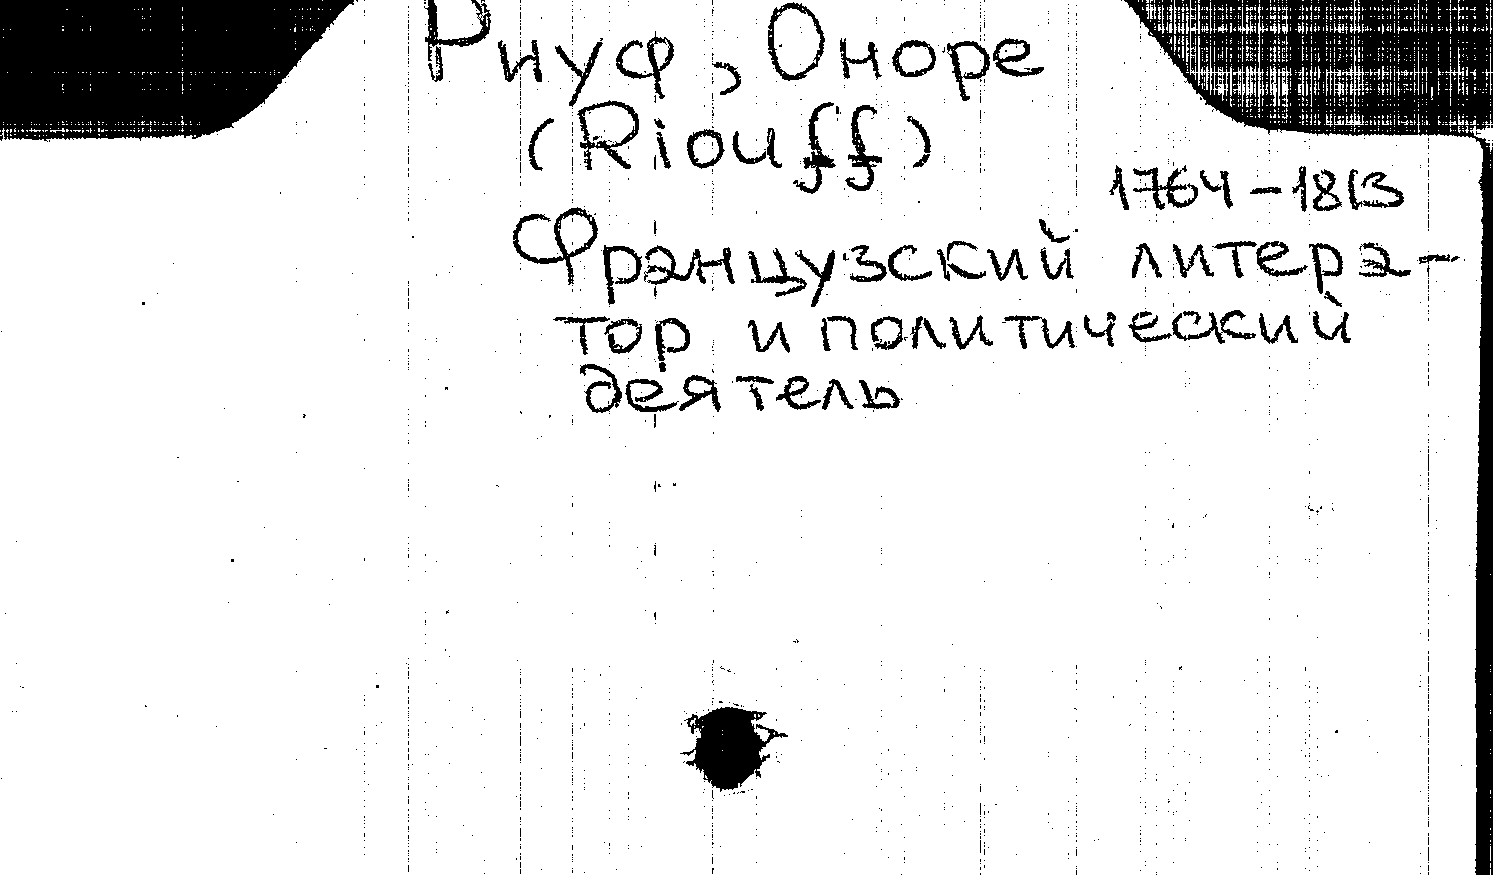 Риуф, Оноре
(Riouff)
1764-1813
Французский литера-
тор и политический
деятель